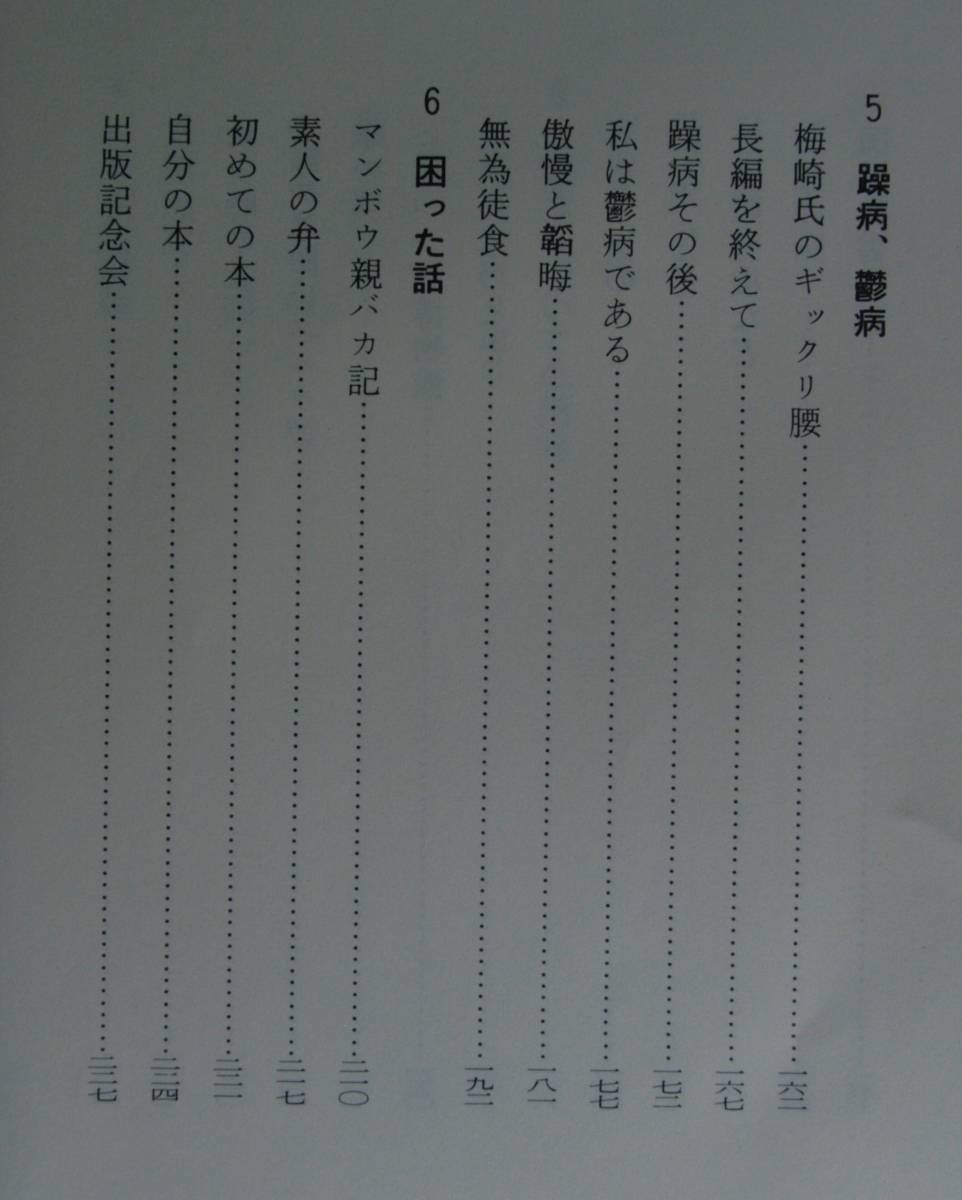 5 躁病、鬱病
梅崎氏のギックリ腰……一六二
長編を終えて……一六七
躁病その後……一七二
私は鬱病である……一七七
傲慢と韜晦……一八一
無為徒食……一九二
6 困った話
マンボウ親バカ記……二一〇
素人の弁……二一七
初めての本……二二一
自分の本……二二四
出版記念会……二二七